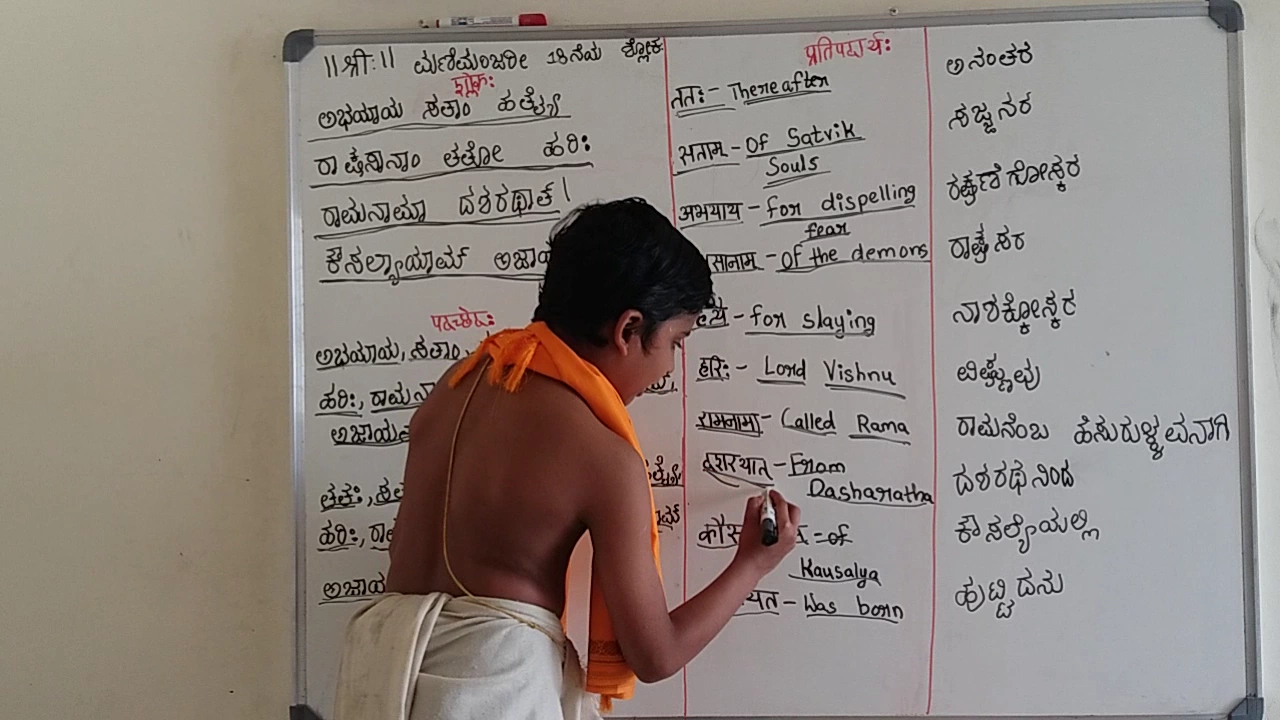 ॥ श्रीः ॥ ಮಣಿಮಂಜರೀ 18ನೆಯ ಶ್ಲೋಕ
श्लोकः
ಅಭಯಾಯ ಸತಾಂ ಹತ್ಯೈ
ರಾಕ್ಷಸಾನಾಂ ತತೋ ಹರಿಃ
ರಾಮನಾಮಾ ದಶರಥಾತ್ ।
ಕೌಸಲ್ಯಾಯಾಮ್
पदच्छेदः
ಅಭಯಾಯ, ಸತಾಂ,
ಹರಿಃ,
ತತಃ,
ಹರಿಃ,
प्रतिपदार्थः
ततः - Thereafter
सताम् - Of Satvik
Souls
अभयाय - for dispelling
fear
Of the demons
for slaying
हरिः - Lord Vishnu
रामनामा - Called Rama
दशरथात् - From
Dasharatha
of
Kausalya
Was born
ಅನಂತರ
ಸಜ್ಜನರ
ರಕ್ಷಣೆಗೋಸ್ಕರ
ರಾಕ್ಷಸರ
ನಾಶಕ್ಕೋಸ್ಕರ
ವಿಷ್ಣುವು
ರಾಮನೆಂಬ ಹೆಸರುಳ್ಳವನಾಗಿ
ದಶರಥನಿಂದ
ಕೌಸಲ್ಯೆಯಲ್ಲಿ
ಹುಟ್ಟಿದನು